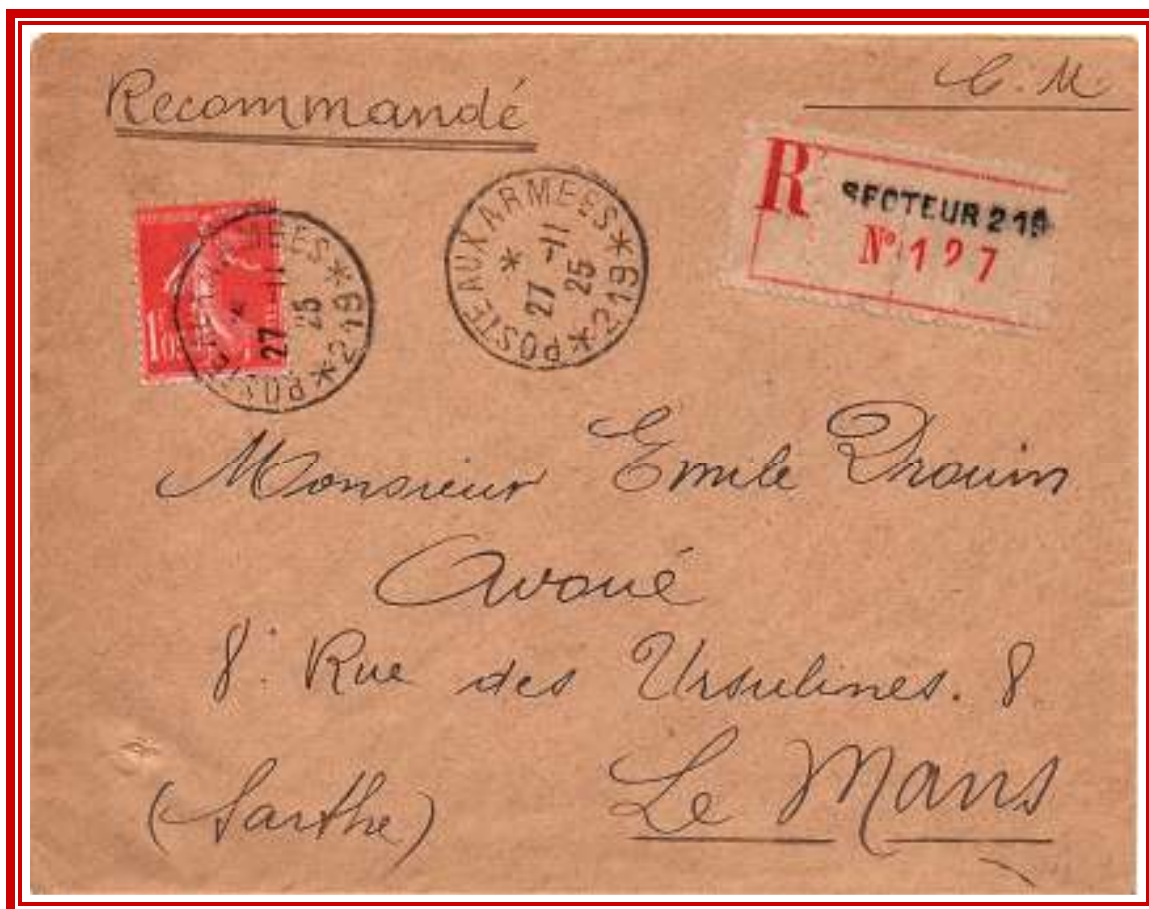 Recommandé
C. M.
R
SECTEUR 219
N° 127
POSTE AUX ARMEES * 219 *
27 -11
25
POSTE AUX ARMEES * 219 *
27 -11
25
1F05
Monsieur Emile Drouin
Avoué
8. Rue des Ursulines. 8
Le Mans
(Sarthe)